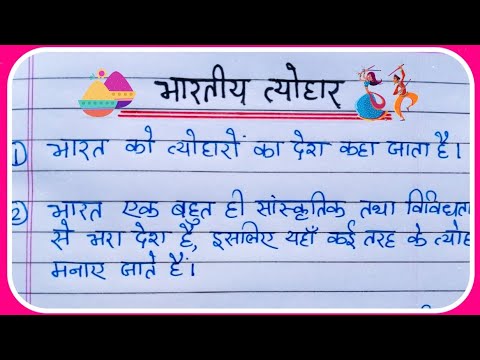 भारतीय त्योहार
1) भारत को त्योहारों का देश कहा जाता है।
2) भारत एक बहुत ही सांस्कृतिक तथा विविधता
से भरा देश है, इसलिए यहाँ कई तरह के त्योह
मनाए जाते हैं।